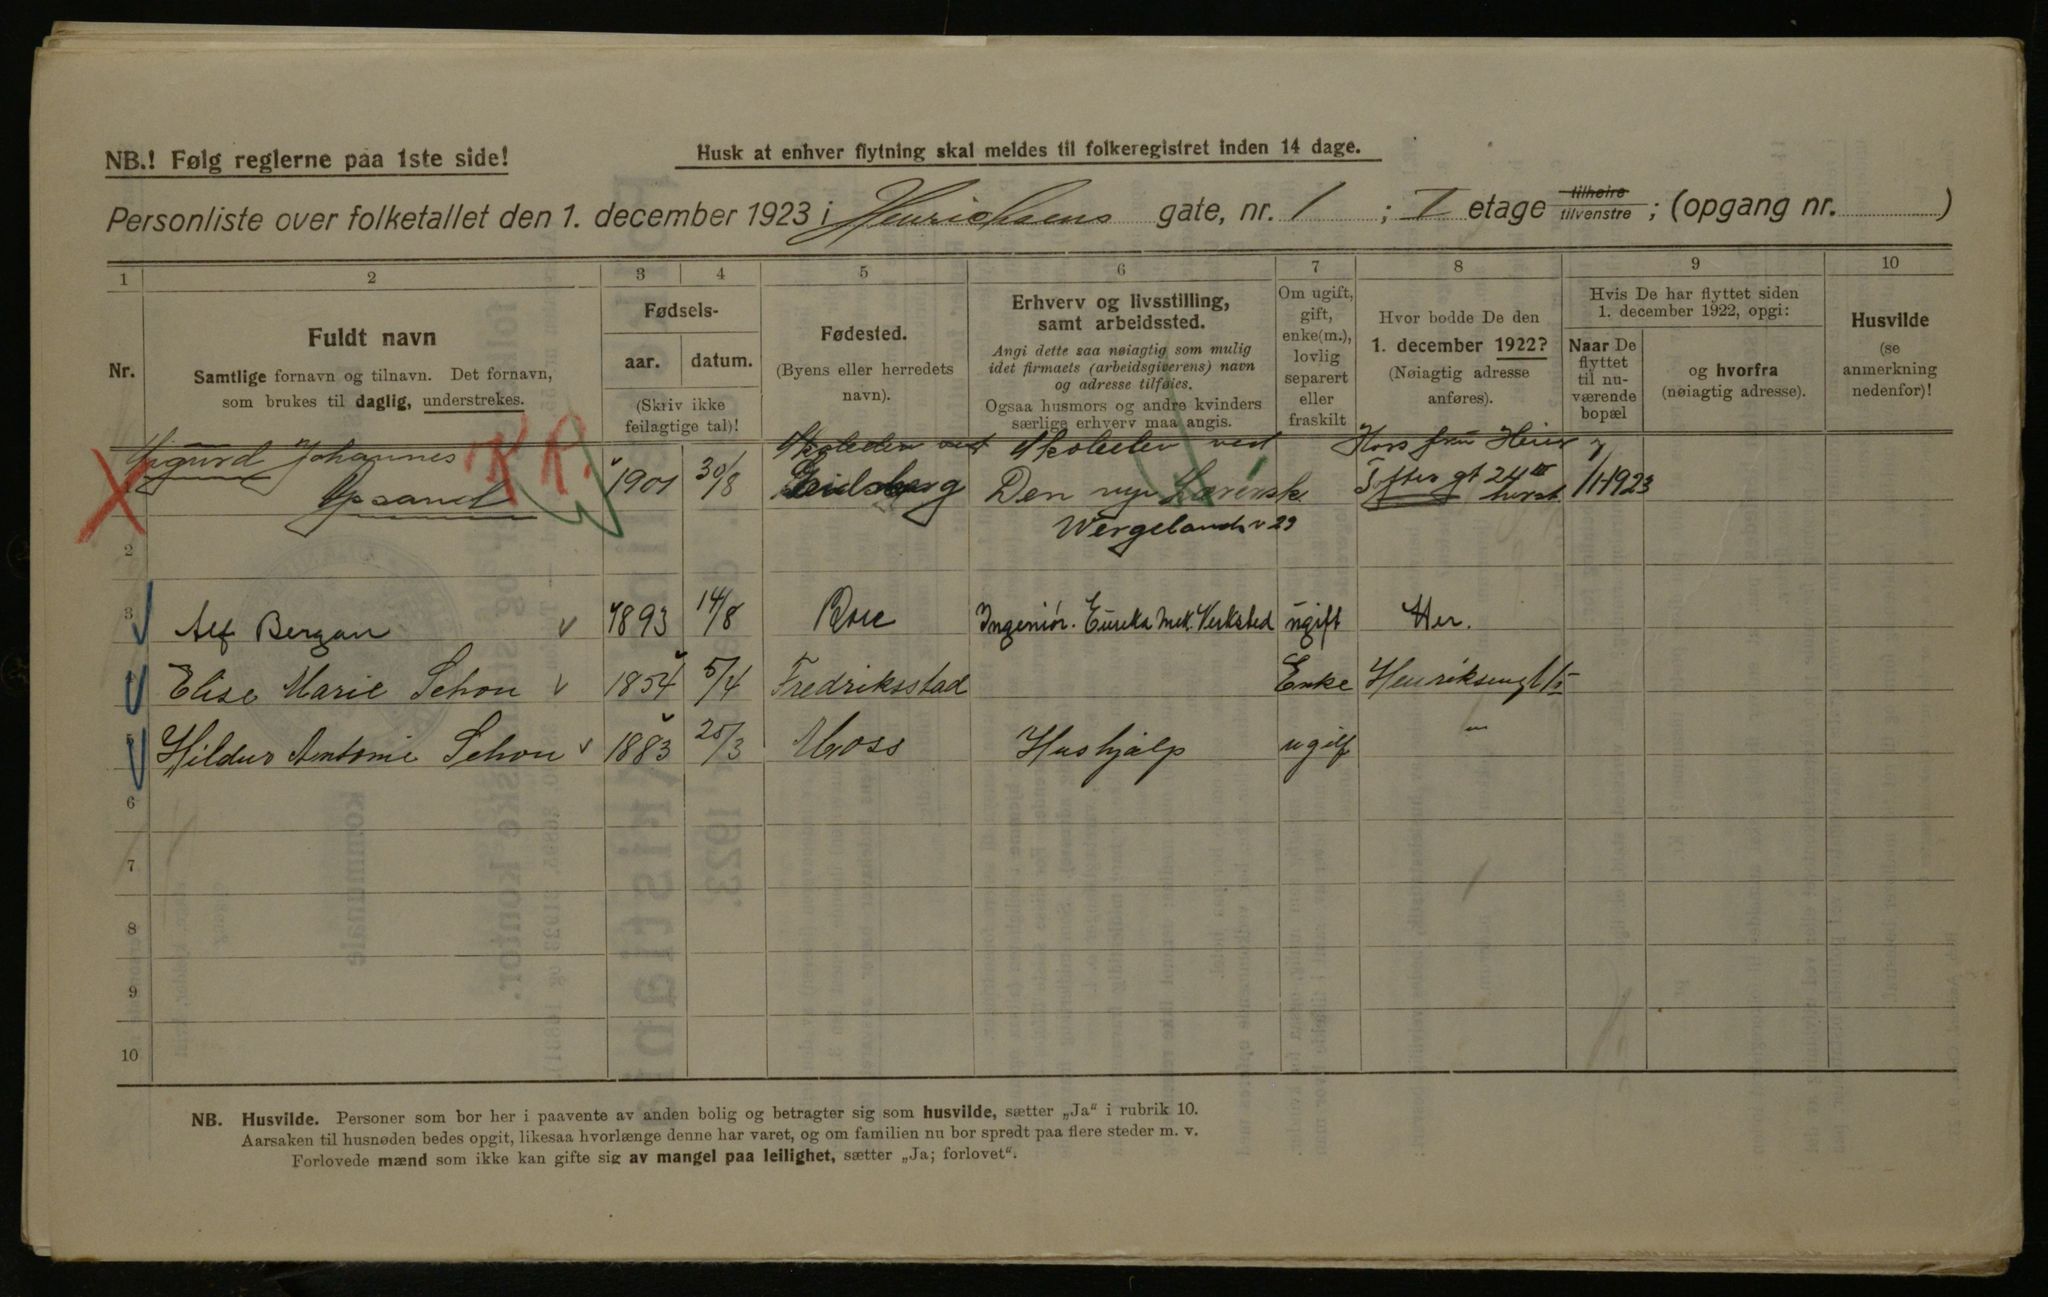 NB.! Følg reglerne paa 1ste side!
Husk at enhver flytning skal meldes til folkeregistret inden 14 dage.
Personliste over folketallet den 1. december 1923 i Henrichsens gate, nr. 1 ; I etage tilhøire tilvenstre ; (opgang nr. )
1 2 3 4 5 6 7 8 9 10
Nr.
Fuldt navn
Samtlige fornavn og tilnavn. Det fornavn,
som brukes til daglig, understrekes.
Fødsels-
aar. datum.
(Skriv ikke
feilagtige tal)!
Fødested.
(Byens eller herredets
navn).
Erhverv og livsstilling,
samt arbeidssted.
Angi dette saa nøiagtig som mulig
idet firmaets (arbeidsgiverens) navn
og adresse tilføies.
Ogsaa husmors og andre kvinders
særlige erhverv maa angis.
Om ugift,
gift,
enke(m.),
lovlig
separert
eller
fraskilt
Hvor bodde De den
1. december 1922?
(Nøiagtig adresse
anføres).
Hvis De har flyttet siden
1. december 1922, opgi:
Naar De
flyttet
til nu-
værende
bopæl
og hvorfra
(nøiagtig adresse).
Husvilde
(se
anmerkning
nedenfor)!
Sigurd Johannes K.R. Skoleelev ved Skoleelev ved Hos fru Heier
1901 30/8 Den nye Toftes gt 24 III 1/1-1923
Wergelands v 29
2
3 Alf Bergan 1893 14/8 Ingeniør. Eureka Mek. Verksted ugift Her.
Elise Marie Schou 1854 5/4 Fredriksstad Enke
5 Hildur Antonie Schou 1883 25/3 Moss Hushjælp ugift "
6
7
8
9
10
NB. Husvilde. Personer som bor her i paavente av anden bolig og betragter sig som husvilde, sætter „Ja“ i rubrik 10.
Aarsaken til husnøden bedes opgit, likesaa hvorlænge denne har varet, og om familien nu bor spredt paa flere steder m. v.
Forlovede mænd som ikke kan gifte sig av mangel paa leilighet, sætter „Ja; forlovet“.